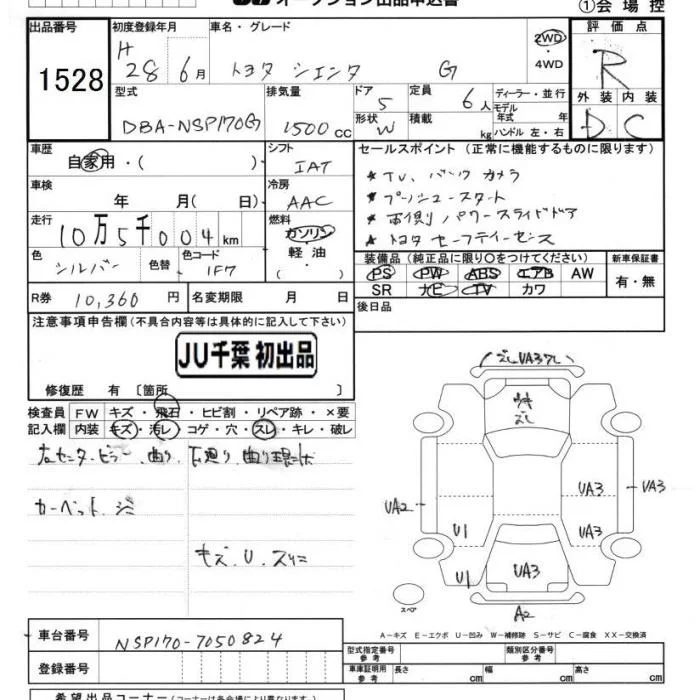 オークション出品申込書
①会場控
出品番号 初度登録年月 車名・グレード 評価点
1528 H 28 6月 トヨタ シエンタ G 2WD ・ 4WD R
型式 排気量 ドア 定員 ディーラー・並行 外装 内装
DBA-NSP170G 1500cc 5 6人 モデル年式 年 D C
形状 W 積載 kg ハンドル 左・右
車歴 シフト セールスポイント (正常に機能するものに限ります)
自家用・( ) IAT ★ TV、バックカメラ
車検 冷房 ★ プッシュスタート
年 月(日) AAC ★ 両側パワースライドドア
走行 燃料 ★ トヨタ セーフティセンス
10万5千004km ガソリン 軽油 ・( )
色 色替 色コード 装備品 (純正品に限り○をつけてください) 新車保証書
シルバー 1F7 PS PW ABS エアB AW 有・無
SR ナビ TV カワ
R券 10,360円 名変期限 月 日 後日品
注意事項申告欄 (不具合内容等は具体的に記入して下さい)
JU千葉 初出品
修復歴 有 〔箇所 〕
検査員 FW キズ・飛石・ヒビ割・リペア跡・×要
記入欄 内装 キズ・汚レ・コゲ・穴・スレ・キレ・破レ
左センターピラー 曲り
カーペット シミ
キズ、U、スリ
UA2
U1
U1
UA3
UA3
UA3
UA3
A2
スペア
A-キズ E-エクボ U-凹み W-補修跡 S-サビ C-腐食 XX-交換済
車台番号 NSP170-7050824
登録番号
型式指定番号 参考 類別区分番号 参考
車庫証明用 参考 長さ cm 幅 cm 高さ cm
希望出品コーナー